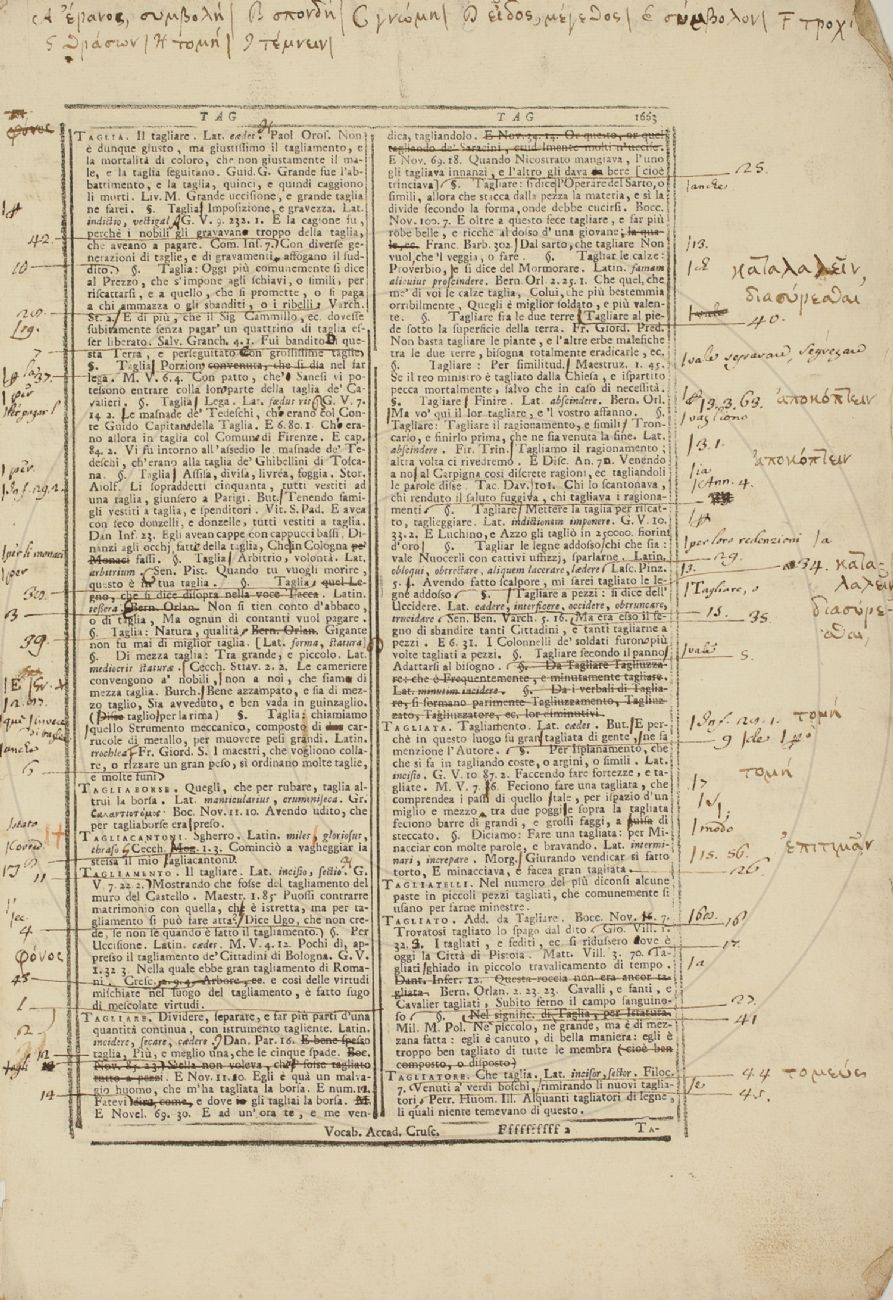 A ἔρανος, συμβολή | B σπονδή | C γνώμη | D εἶδος, μέγεθος | E σύμβολον | F τροχ
G θράσων | H τομή | I τέμνειν |
TAG TAG 1663
TAGLIA. Il tagliare. Lat. cædes. Paol Oros. Non
è dunque giusto, ma giustissimo il tagliamento, e
la mortalità di coloro, che non giustamente il ma-
le, e la taglia seguitano. Guid. G. Grande fue l'ab-
battimento, e la taglia, quinci, e quindi caggiono
li morti. Liv. M. Grande uccisione, e grande taglia
ne farei. §. Taglia Imposizione, e gravezza. Lat.
indictio, vectigal G. V. 9. 232. 1. E la cagione fu,
perchè i nobili gli gravavano troppo della taglia,
che aveano a pagare. Com. Inf. 7. Con diverse ge-
nerazioni di taglie, e di gravamenti affogano il sud-
dito. §. Taglia: Oggi più comunemente si dice
al Prezzo, che s'impone agli schiavi, o simili, per
riscattarsi, e a quello, che si promette, o si paga
a chi ammazza o gli sbanditi, o i ribelli. Varch.
St. 2. E di più, che il Sig. Cammillo, ec. dovesse
subitamente senza pagar' un quattrino di taglia es-
ser liberato. Salv. Granch. 4. 1. Fui bandito Di que-
sta Terra, e perseguitato Con grossissime taglie
§. Taglia Porzion convenuta, che si dia nel far
lega. M. V. 6. 4. Con patto, che' Sanesi vi po-
tessono entrare colla loro parte della taglia de' Ca-
valieri. §. Taglia Lega. Lat. fœdus G. V. 7.
14. 2. Le masnade de' Tedeschi, che erano col Con-
te Guido Capitano della Taglia. E 6. 80. 1. Che era-
no allora in taglia col Comun di Firenze. E cap.
84. 2. Vi fu intorno all'assedio le masnade de' Te-
deschi, ch'erano alla taglia de' Ghibellini di Tosca-
na. §. Taglia Assisa, divisa, livrea, foggia. Stor.
Aiolf. Li sopraddetti cinquanta, tutti vestiti ad
una taglia, giunsero a Parigi. But. Tenendo fami-
gli vestiti a taglia, e spenditori. Vit. S. Pad. E avea
con seco donzelli, e donzelle, tutti vestiti a taglia.
Dan Inf. 23. Egli avean cappe con cappucci bassi Di-
nanzi agli occhj, fatte della taglia, Che in Cologna per
Monaci fassi. §. Taglia Arbitrio, volontà. Lat.
arbitrium. Sen. Pist. Quando tu vuogli morire,
questo è in tua taglia. §. Taglia quel Le-
gno, che si dice disopra nella voce Tacca. Latin.
tessera. Bern. Orlan. Non si tien conto d'abbaco,
o di taglia, Ma ognun di contanti vuol pagare.
§. Taglia: Natura, qualità. Bern. Orlan. Gigante
non fu mai di miglior taglia. [Lat. forma, statura]
§. Di mezza taglia: Tra grande, e piccolo. Lat.
mediocris statura. Cecch. Stiav. 2. 2. Le cameriere
convengono a' nobili, non a noi, che siamo di
mezza taglia. Burch. Bene azzampato, e sia di mez-
zo taglio, Sia avveduto, e ben vada in guinzaglio.
(Disse taglio per la rima) §. Taglia: chiamiamo
quello Strumento meccanico, composto di due car-
rucole di metallo, per muovere pesi grandi. Latin.
trochlea. Fr. Giord. S. I maestri, che vogliono colla-
re, o rizzare un gran peso, sì ordinano molte taglie,
e molte funi.
TAGLIABORSE. Quegli, che per rubare, taglia al-
trui la borsa. Lat. manicularius, crumiseca. Gr.
βαλαντιοτόμος. Boc. Nov. 11. 10. Avendo udito, che
per tagliaborse era preso.
TAGLIACANTONI. Sgherro. Latin. miles gloriosus,
thraso. Cecch. Mog. 1. 3. Cominciò a vagheggiar la
stessa il mio Tagliacantoni.
TAGLIAMENTO. Il tagliare. Lat. incisio, sectio. G.
V. 7. 22. 2. Mostrando che fosse del tagliamento del
muro del Castello. Maestr. 1. 85 Puossi contrarre
matrimonio con quella, che è istretta, ma per ta-
gliamento si può fare atta? Dice Ugo, che non cre-
de, se non se quando è fatto il tagliamento. §. Per
Uccisione. Latin. cædes. M. V. 4. 12. Pochi dì, ap-
presso il tagliamento de' Cittadini di Bologna. G. V.
1. 32 3. Nella quale ebbe gran tagliamento di Roma-
ni. Cresc. 2. 9. 4. Arbore, ec. e così delle virtudi
mischiate nel luogo del tagliamento, è fatto sugo
di mescolate virtudi.
TAGLIARE. Dividere, separare, e far più parti d'una
quantità continua, con istrumento tagliente. Latin.
incidere, secare, cædere. Dan. Par. 16. E bene spesso
taglia, Più, e meglio una, che le cinque spade. Boc.
Nov. 85. 23. Stella non voleva, che fosse tagliato
tutto a pezzi. E Nov. 11. 10. Egli è quà un malva-
gio huomo, che m'ha tagliata la borsa. E num. 12.
Fatevi dire, come, e dove io gli tagliai la borsa. M.
E Novel. 69. 30. E ad un'ora te, e me ven-
dica, tagliandolo. E Nov. 29. 14. Or questo, or quel
tagliando de' Saracini, crudelmente molti n'uccise.
E Nov. 69. 18. Quando Nicostrato mangiava, l'uno
gli tagliava innanzi, e l'altro gli dava da bere [cioè
trinciava] §. Tagliare: si dice l'Operare del Sarto, o
simili, allora che stacca dalla pezza la materia, e sì la
divide secondo la forma, onde debbe cucirsi. Bocc.
Nov. 100. 7. E oltre a questo fece tagliare, e far più
robe belle, e ricche al dosso d'una giovane, la qua-
le, ec. Franc. Barb. 302. Dal sarto, che tagliare Non
vuol, che 'l veggia, o fare. §. Tagliar le calze:
Proverbio, e si dice del Mormorare. Latin. famam
alicuius proscindere. Bern. Orl 2. 25. 1. Che quel, che
me' di voi le calze taglia, Colui, che più bestemmia
orribilmente, Quegli è miglior soldato, e più valen-
te. §. Tagliare fra le due terre Tagliare al pie-
de sotto la superficie della terra. Fr. Giord. Pred.
Non basta tagliare le piante, e l'altre erbe malefiche
tra le due terre, bisogna totalmente eradicarle, ec.
§. Tagliare: Per similitud. Maestruz. 1. 45.
Se il reo ministro è tagliato dalla Chiesa, e ispartito
pecca mortalmente, salvo che in caso di necessità.
§. Tagliare Finire. Lat. abscindere. Bern. Orl.
Ma vo' qui il lor tagliare, e 'l vostro affanno. §.
Tagliare: Tagliare il ragionamento, e simili Tron-
carlo, e finirlo prima, che ne sia venuta la fine. Lat.
abscindere. Fir. Trin. Tagliamo il ragionamento;
altra volta ci rivedremo. E Disc. An. 70. Venendo
a noi al Carpigna così discrete ragioni, ec tagliandoli
le parole disse. Tac. Dav. 101. Chi lo scantonava,
chi renduto il saluto fuggiva, chi tagliava i ragiona-
menti. §. Tagliare Mettere la taglia per riscat-
to, taglieggiare. Lat. indictionem imponere. G. V. 10.
33. 2. E Luchino, e Azzo gli tagliò in 25000. fiorin
d'oro. §. Tagliar le legne addosso chi che sia:
vale Nuocerli con cattivi uffizj, sparlarne. Latin.
obloqui, obtrectare, aliquem lacerare, lædere. Lasc. Pinz.
5. 1. Avendo fatto scalpore, mi sarei tagliato le le-
gne addosso. §. Tagliare a pezzi: si dice dell'
Uccidere. Lat. cædere, interficere, occidere, obtruncare,
trucidare. Sen. Ben. Varch. 5. 16. Ma era esso il se-
gno di sbandire tanti Cittadini, e tanti tagliarne a
pezzi. E 6. 31. I Colonnelli de' soldati furono più
volte tagliati a pezzi. §. Tagliare secondo il panno
Adattarsi al bisogno. §. Da Tagliare Tagliuzza-
re: che è Frequentemente, e minutamente tagliare.
Lat. minutim incidere. §. Da i verbali di Taglia-
re, si formano parimente Tagliuzzamento, Tagliuz-
zato, Tagliuzzatore, ec. lor diminutivi.
TAGLIATA. Tagliamento. Lat. cædes. But. E per-
chè in questo luogo fu gran tagliata di gente, ne fa
menzione l'Autore. §. Per ispianamento, che
che si fa in tagliando coste, o argini, o simili. Lat.
incisio. G. V. 10 87. 2. Faccendo fare fortezze, e ta-
gliate. M. V. 7. 16. Feciono fare una tagliata, che
comprendea i passi di quello stale, per ispazio d'un
miglio e mezzo, tra due poggi e sopra la tagliata
feciono barre di grandi, e grossi faggi, a guisa di
steccato. §. Diciamo: Fare una tagliata: per Mi-
nacciar con molte parole, e bravando. Lat. intermi-
nari, increpare. Morg. Giurando vendicar sì fatto
torto, E minacciava, e facea gran tagliata.
TAGLIATELLI. Nel numero del più diconsi alcune
paste in piccoli pezzi tagliati, che comunemente si
usano per farne minestre.
TAGLIATO. Add. da Tagliare. Bocc. Nov. 16. 7.
Trovatosi tagliato lo spago dal dito. Gio. Vill. 1.
32. 3. I tagliati, e fediti, ec. si ridussero dove è
oggi la Città di Pistoia. Matt. Vill. 3. 70. Ta-
gliati ghiado in piccolo travalicamento di tempo.
Dant. Infer. 12. Questa roccia non era ancor ta-
gliata. Bern. Orlan. 2. 23. 23. Cavalli, e fanti, e
Cavalier tagliati, Subito ferno il campo sanguino-
so. §. Nel signific. di Taglia, per Istatura.
Mil. M. Pol. Ne piccolo, ne grande, ma è di mez-
zana fatta: egli è canuto, di bella maniera: egli è
troppo ben tagliato di tutte le membra (cioè ben
composto, o disposto)
TAGLIATORE. Che taglia. Lat. incisor, sector. Filoc.
7. Venuti a' verdi boschi, rimirando li nuovi taglia-
tori. Petr. Huom. Ill. Alquanti tagliatori di legne,
li quali niente temevano di questo.
Vocab. Accad. Crusc. Fffffffff 2 TA-
φόνος
42.
10
29.
39.
63
11
4
φόνος
45
62
12
14
25.
anche
13.
καταλαλεῖν,
διασύρεσθαι
40.
vale separare, segregare
13. 3. 63. ἀποκόπτειν
13. 1.
ἀποκόπτειν
Ann. 4.
per loro redenzioni
29.
34. κατα-
λαλεῖν
διασύρε-
σθαι,
Tagliare, o
15. 35.
vale 5.
Inf. 29. 1. τομή
9
τομή
17
modo
15. 56. ἐπιτιμᾶν
26.
16
17.
23.
41
44 τομεύς
45.